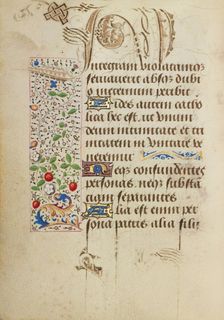 integram inviolatamqꝫ
servaverit absqꝫ dubi
o in eternum peribit
Fides autem catho
lica hec est ut unum
deum in trinitate et tri
nitatem in unitate ve
neremur
Neqꝫ confundentes
personas neqꝫ substan
ciam separantes
Alia est enim per
sona patris alia filii